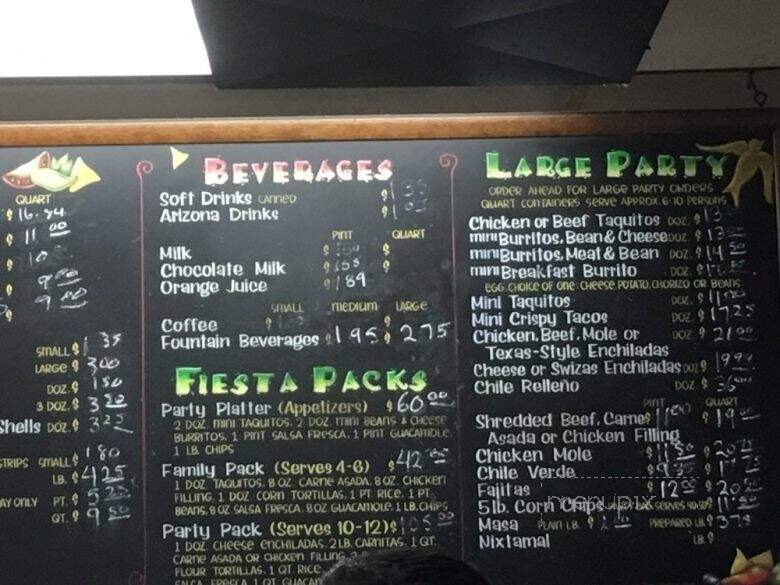 QUART
$ 16.94
$ 11.00
$
$ 9.00
$ 9.00
SMALL $ 1.35
LARGE $ 3.00
DOZ. $ 1.50
3 DOZ. $
Shells DOZ. $ 3.25
STRIPS SMALL $ 1.80
LB. $ 4.25
AY ONLY PT. $ 5.25
QT. $ 9.50
BEVERAGES
Soft Drinks CANNED $
Arizona Drinks $
PINT QUART
Milk $ $
Chocolate Milk $ $
Orange Juice $ 1.89
SMALL MEDIUM LARGE
Coffee $
Fountain Beverages $ 1.95 $ 2.75
FIESTA PACKS
Party Platter (Appetizers) $ 60.00
2 DOZ. MINI TAQUITOS, 2 DOZ. MINI BEANS & CHEESE
BURRITOS, 1 PINT SALSA FRESCA, 1 PINT GUACAMOLE,
1 LB. CHIPS
Family Pack (Serves 4-6) $ 42
1 DOZ. TAQUITOS, 8 OZ. CARNE ASADA, 8 OZ. CHICKEN
FILLING, 1 DOZ. CORN TORTILLAS, 1 PT. RICE, 1 PT.
BEANS, 8 OZ. SALSA FRESCA, 8 OZ. GUACAMOLE, 1 LB. CHIPS
Party Pack (Serves 10-12) $ 105.00
1 DOZ. CHEESE ENCHILADAS, 2 LB. CARNITAS, 1 QT.
CARNE ASADA OR CHICKEN FILLING, 2
FLOUR TORTILLAS, 1 QT. RICE,
SALSA FRESCA, 1 QT. GUACAM
LARGE PARTY
ORDER AHEAD FOR LARGE PARTY ORDERS
QUART CONTAINERS SERVE APPROX. 6-10 PERSONS
Chicken or Beef Taquitos DOZ. $
mini Burritos, Bean & Cheese DOZ. $
mini Burritos, Meat & Bean DOZ. $ 14.50
mini Breakfast Burrito DOZ. $
EGG, CHOICE OF ONE: CHEESE, POTATO, CHORIZO OR BEANS
Mini Taquitos DOZ. $ 11.00
Mini Crispy Tacos DOZ. $ 17.25
Chicken, Beef, Mole or DOZ. $ 21.00
Texas-Style Enchiladas
Cheese or Swizas Enchiladas DOZ. $ 19.99
Chile Relleño DOZ. $ 36.00
PINT QUART
Shredded Beef, Carne $ 11.00 $ 19
Asada or Chicken Filling
Chicken Mole $ 11.50 $
Chile Verde $ 9.35 $
Fajitas $ 12.00 $
5 lb. Corn Chips SERVES $
Masa PLAIN LB. $ PREPARED LB. $ 3.75
Nixtamal LB. $
menupix